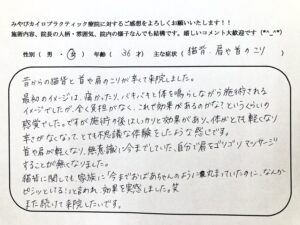 みやびカイロプラクティック療院に対するご感想をよろしくお願いいたします!!
施術内容、院長の人柄・雰囲気、院内の様子なんでも結構です。嬉しいコメント大歓迎です(*^_^*)
性別( 男・女 ) 年齢( 36 才 ) 主な症状( 猫背・肩や首のコリ )
昔からの猫背と首や肩のこりが辛くて来院しました。
最初のイメージは、痛かったり、バキバキと体を鳴らしながら施術される
イメージでしたが、全く負担がなく、これで効果があるのかな?というくらいの
感覚でした。ですが施術の後はしっかりと効果があり、体がとても軽くなり
辛さがなくなって、とても不思議な体験をしたような感じです。
首や肩が軽くなり、無意識に今までしていた、自分で肩をゴリゴリマッサージ
することが無くなりました。
猫背に関しても、家族に「今までおばあちゃんのように丸まっていたのに、なんか
ピシッとしてる!」と言われ、効果を実感しました。笑
また続けて来院したいです。